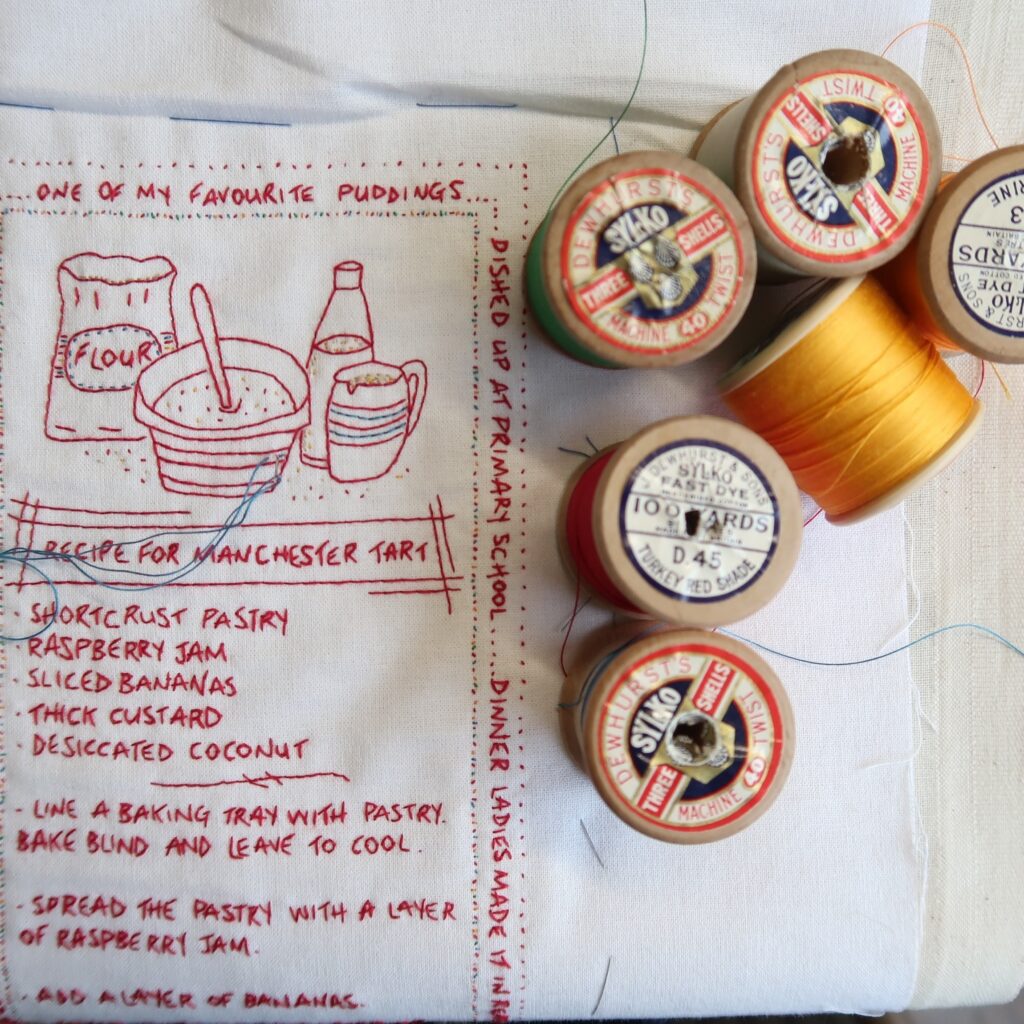 ...ONE OF MY FAVOURITE PUDDINGS...
FLOUR
RECIPE FOR MANCHESTER TART
· SHORTCRUST PASTRY
· RASPBERRY JAM
· SLICED BANANAS
· THICK CUSTARD
· DESICCATED COCONUT
- LINE A BAKING TRAY WITH PASTRY.
BAKE BLIND AND LEAVE TO COOL.
- SPREAD THE PASTRY WITH A LAYER
OF RASPBERRY JAM.
- ADD A LAYER OF BANANAS.
DISHED UP AT PRIMARY SCHOOL...DINNER LADIES MADE IT IN
DEWHURST'S
SYLKO
THREE SHELLS
MACHINE 40 TWIST
DEWHURST'S
SYLKO
THREE SHELLS
MACHINE 40 TWIST
DEWHURST & SONS
SYLKO
FAST DYE
100 YARDS
D.45
TURKEY RED SHADE
DEWHURST'S
SYLKO
THREE SHELLS
MACHINE 40 TWIST